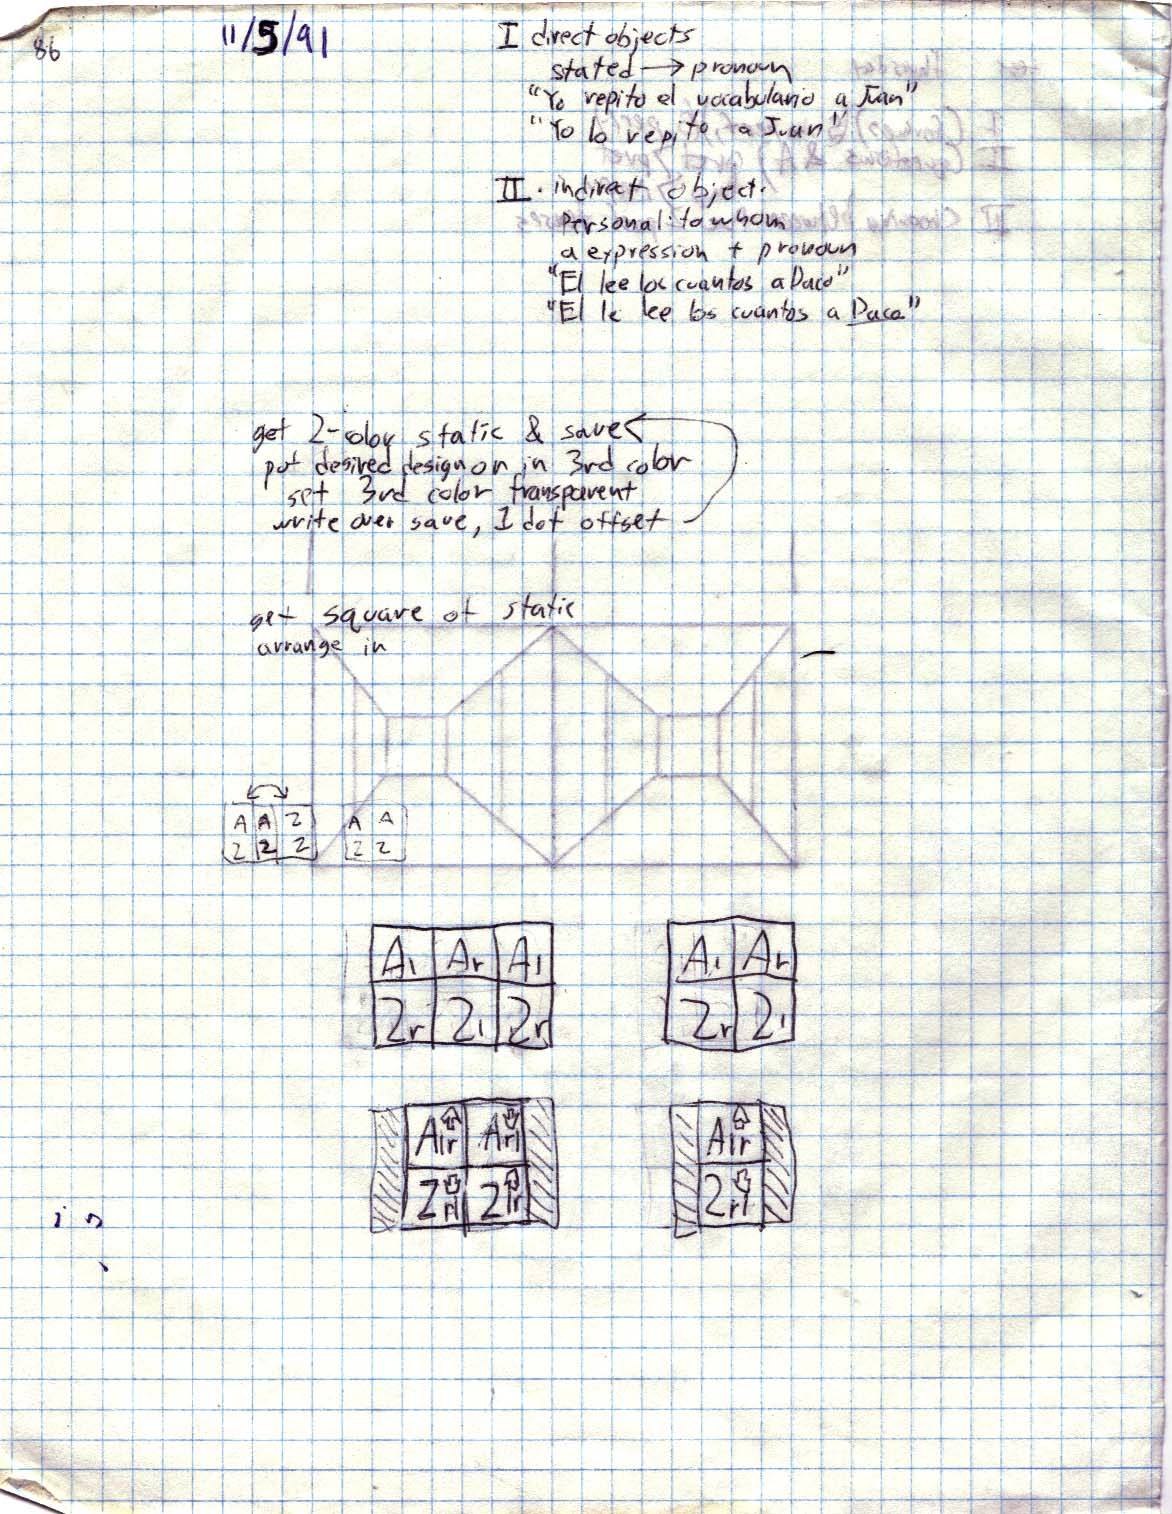 86
11/5/91
I direct objects
stated → pronoun
"Yo repito el vocabulario a Juan"
"Yo lo repito a Juan"
II. indirect object.
Personal: to whom
a expression + pronoun
"El lee los cuantos a Paco"
"El le lee los cuantos a Paco"
get 2-color static & save
put desired design on in 3rd color
set 3rd color transparent
write over save, 1 dot offset
get square of static
arrange in
A A Z A A
Z Z Z Z Z
Al Ar Al Al Ar
Zr Zl Zr Zr Zl
Alr Arl Alr
Zrl Zlr Zrl